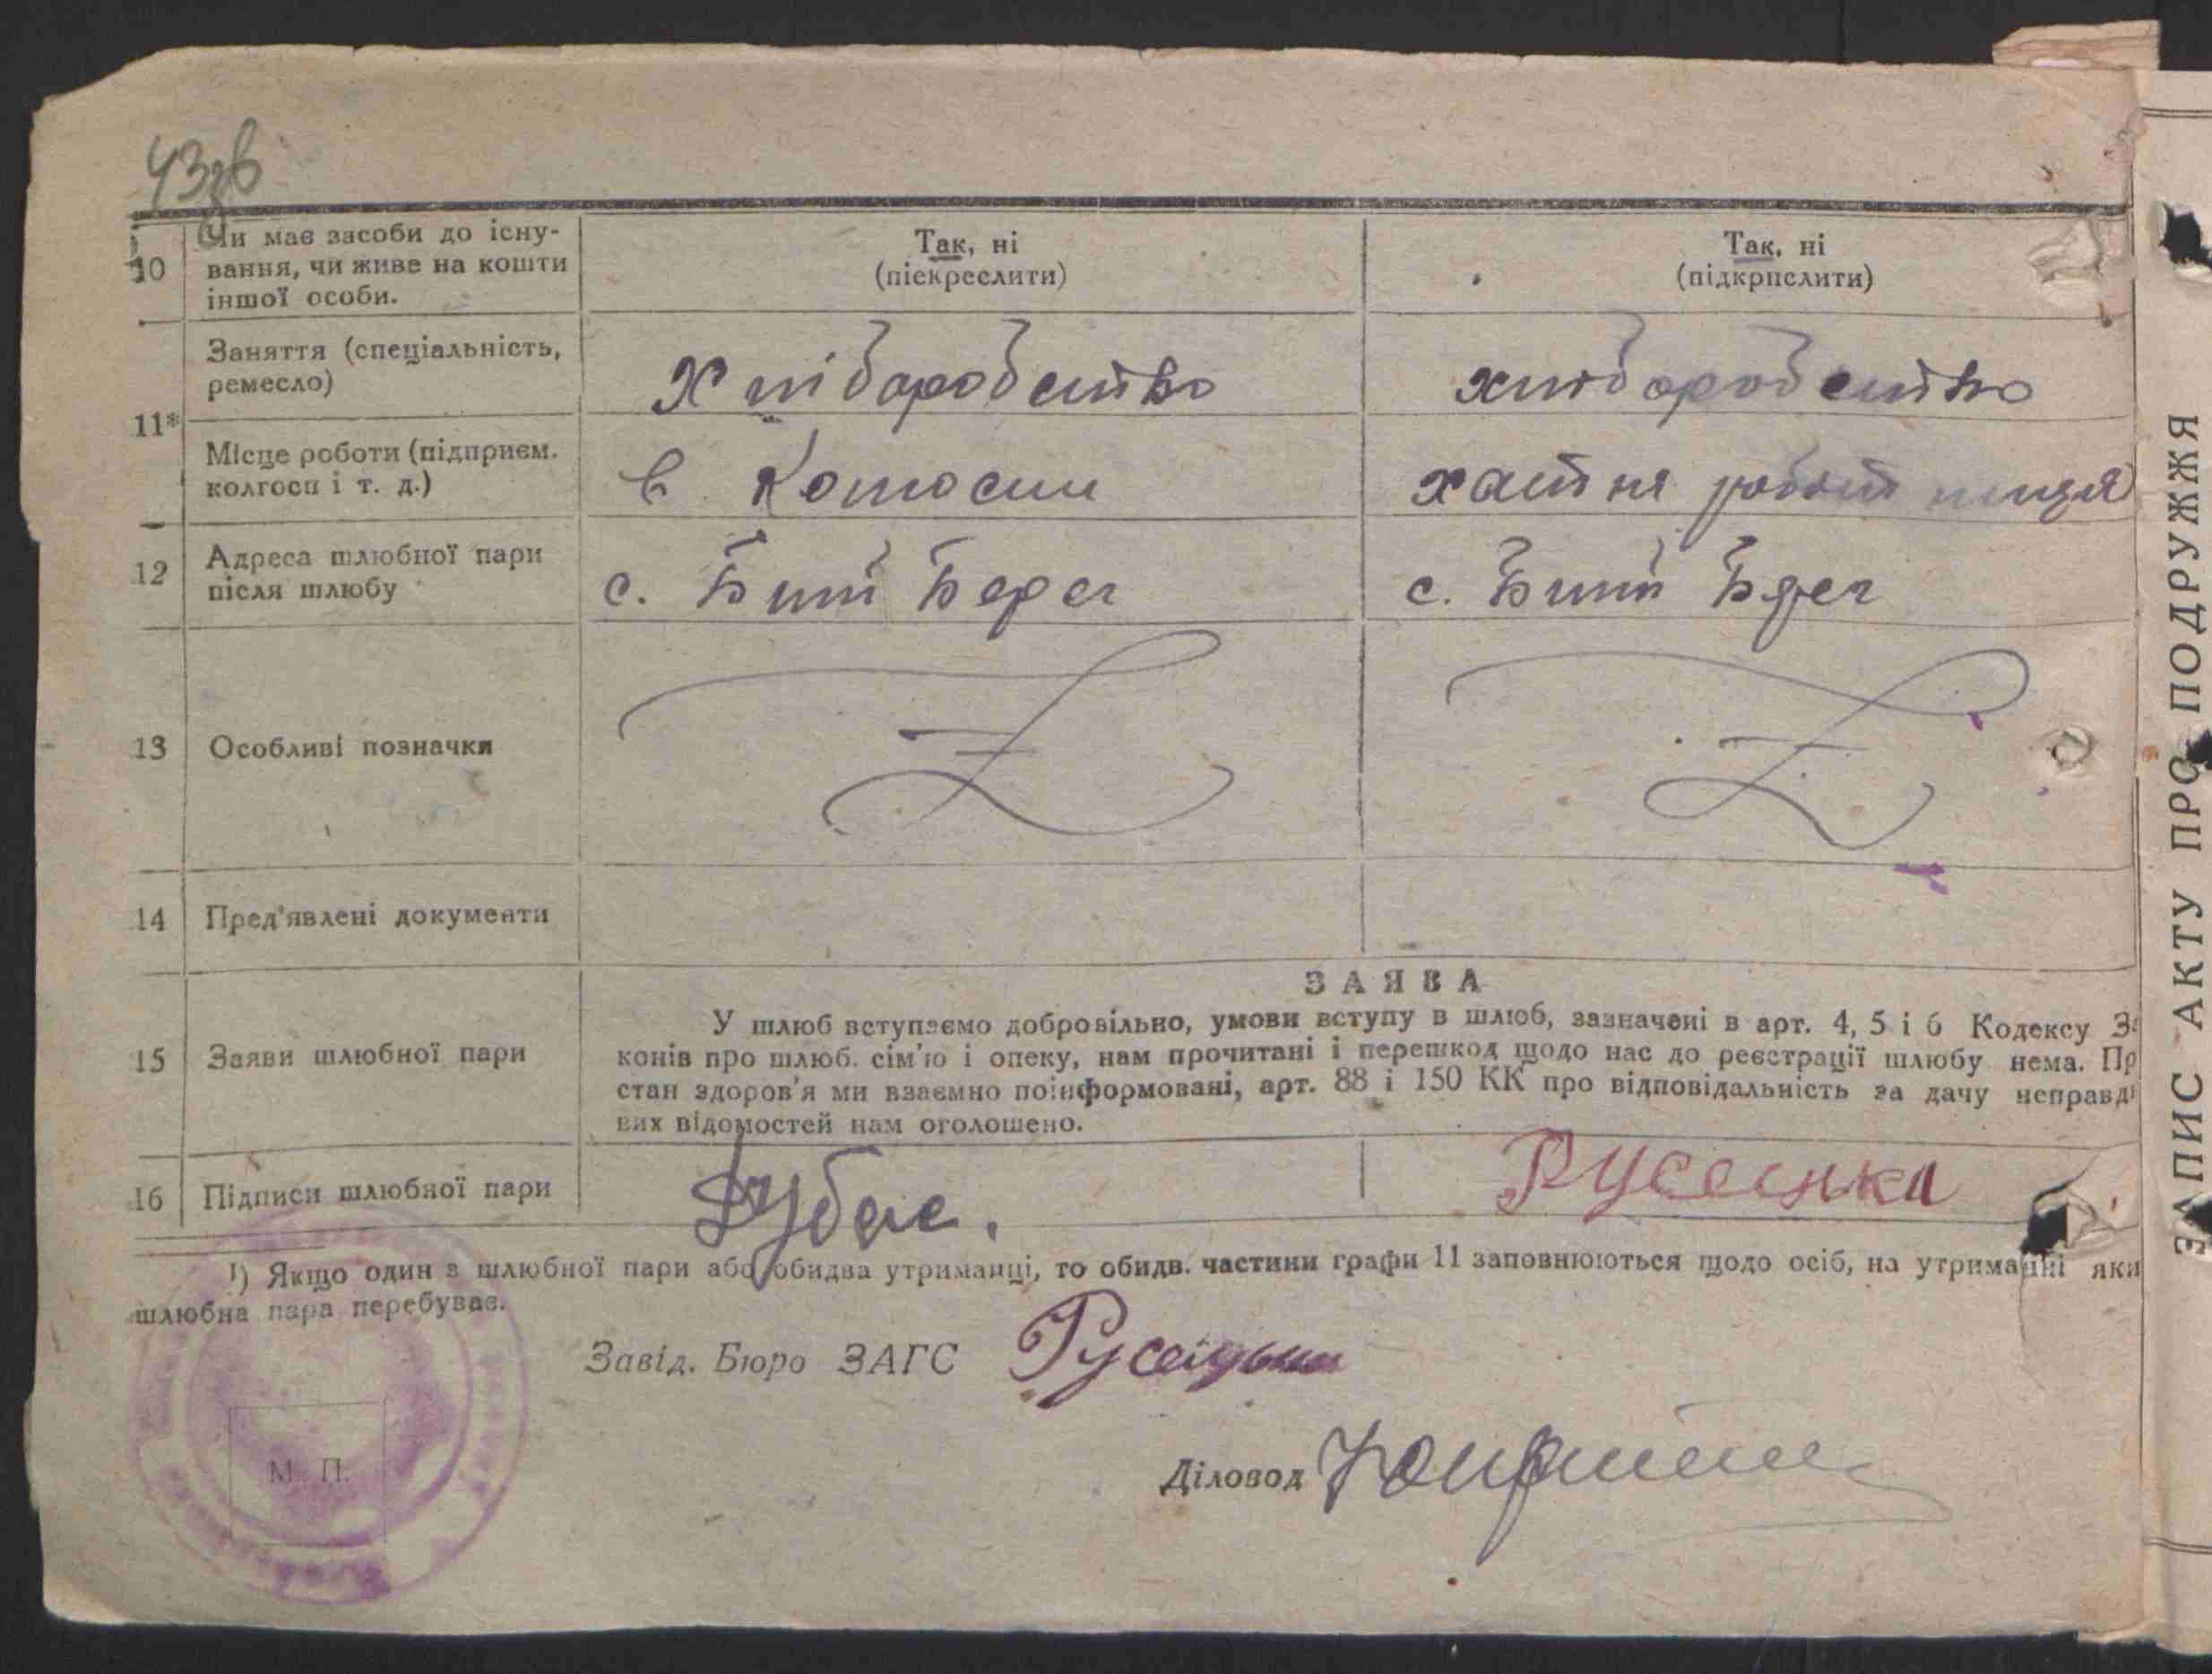 43зв
10 Чи має засоби до існу-
вання, чи живе на кошти
іншої особи.
Так, ні
(піекреслити)
Так, ні
(підкрпслити)
11*
Заняття (спеціальність,
ремесло)
Хлібаробство
хлібаробство
Місце роботи (підприєм.
колгосп і т. д.)
в Колгоспи
хатня робітниця
12 Адреса шлюбної пари
після шлюбу
с. Білий Берег
с. Білий Берег
13 Особливі позначки
14 Пред'явлені документи
15 Заяви шлюбної пари
ЗАЯВА
У шлюб вступаємо добровільно, умови вступу в шлюб, зазначені в арт. 4, 5 і 6 Кодексу За
конів про шлюб. сім'ю і опеку, нам прочитані і перешкод щодо нас до реєстрації шлюбу нема. Пр
стан здоров'я ми взаємно поінформовані, арт. 88 і 150 КК про відповідальність за дачу неправди
вих відомостей нам оголошено.
16 Підписи шлюбної пари
Русецька
¹) Якщо один з шлюбної пари або обидва утриманці, то обидв. частини графи 11 заповнюються щодо осіб, на утриманні яки
шлюбна пара перебуває.
Завід. Бюро ЗАГС
Діловод
М. П.
ЗАПИС АКТУ ПРО ПОДРУЖЖЯ